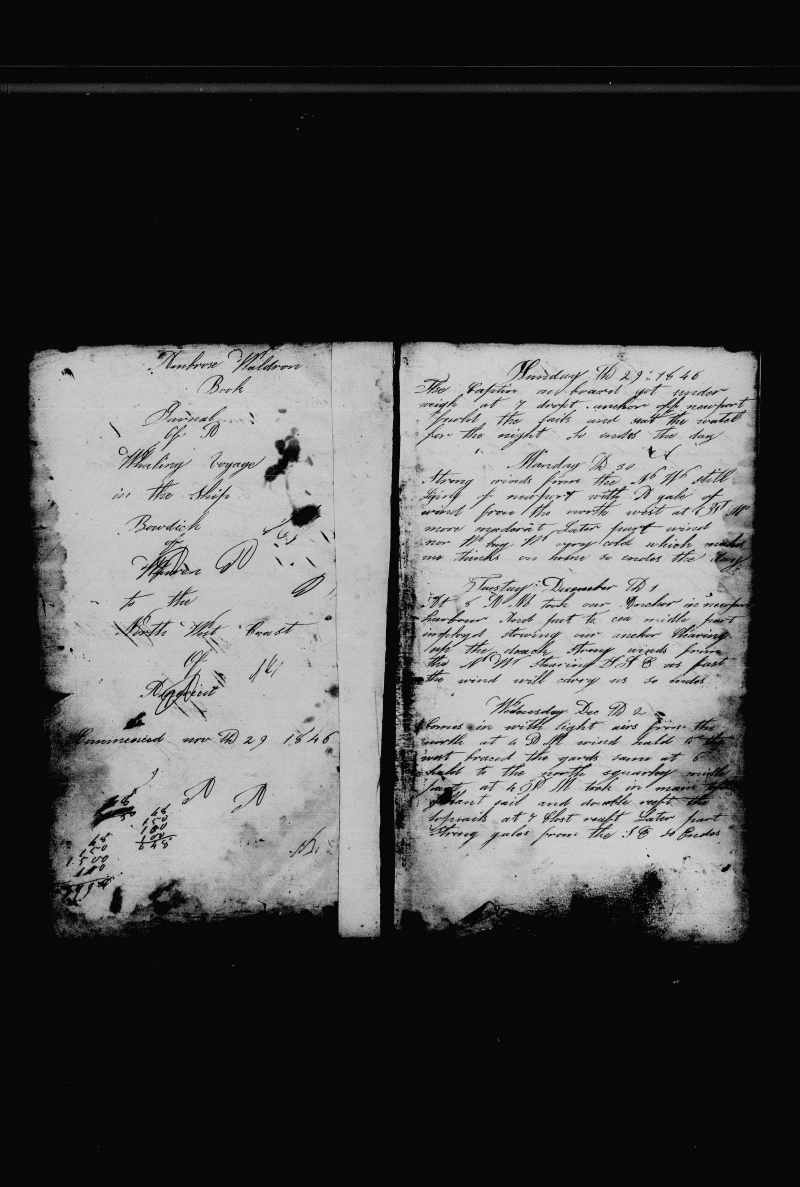 Ambrose Waldron
Book
Jurnal
of A
Whaling Voyage
in the Ship
Bowdich
of
Warren
to the
North West Coast
of
Commenced nov th 29 1846
48
150
100
100
48
150
1500
100
Sunday th 29: 1846
The Captin on board got under
weigh at 7 dropt anchor off newport
furld the sails and set the watch
for the night So endes the day
Monday th 30
Strong winds from the N W still
lying of newport with A gale of
wind from the north west at
more moderat Later part wind
nor W by W very cold which makes
me think on home so endes the day
Tuesday December th 1
At 8 A M took our Anchor in newport
harbour And put to cea midle part
imployd stowing our anchor Clearing
up the deack strong winds from
the N W Stearing S S E as fast
the wind will carry us so endes
Wednesday Dec th 2
Comes in with light airs from the
north at 4 P M wind hald to the
west braced the yards same at 6
hald to the north squarley midle
part at 4 P M took in main
gallant sail and double reeft the
topsails at 7 Clost reeft Later part
Strong gales from the S E So Endes